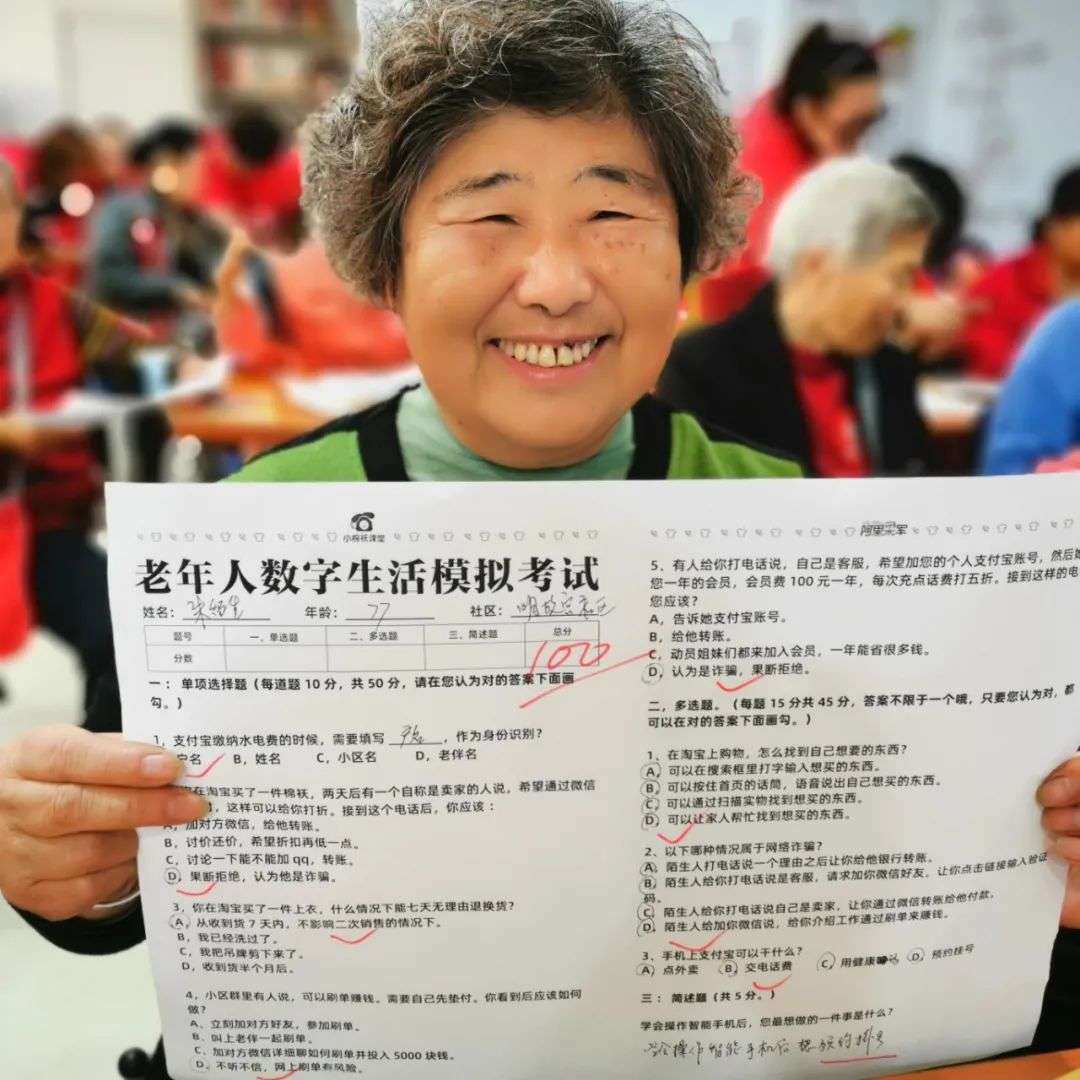 小棉袄课堂
老年人数字生活模拟考试
姓名： 年龄：77 社区：
题号 一、单选题 二、多选题 三、简述题 总分
分数 100
一：单项选择题（每道题 10 分，共 50 分，请在您认为对的答案下面画
勾。）
1，支付宝缴纳水电费的时候，需要填写 ，作为身份识别？
户名 B，姓名 C，小区名 D，老伴名
在淘宝买了一件棉袄，两天后有一个自称是卖家的人说，希望通过微信
，这样可以给你打折。接到这个电话后，你应该：
A，加对方微信，给他转账。
B，讨价还价，希望折扣再低一点。
C，讨论一下能不能加 qq，转账。
D，果断拒绝，认为他是诈骗。
3，你在淘宝买了一件上衣，什么情况下能七天无理由退换货？
A，从收到货 7 天内，不影响二次销售的情况下。
B，我已经洗过了。
C，我把吊牌剪下来了。
D，收到货半个月后。
4，小区群里有人说，可以刷单赚钱。需要自己先垫付。你看到后应该如何
做？
A、立刻加对方好友，参加刷单。
B、叫上老伴一起刷单。
C、加对方微信详细聊如何刷单并投入 5000 块钱。
D、不听不信，网上刷单有风险。
阿里
5、有人给你打电话说，自己是客服，希望加您的个人支付宝账号，然后
您一年的会员，会员费 100 元一年，每次充点话费打五折。接到这样的电
您应该？
A，告诉她支付宝账号。
B，给他转账。
C，动员姐妹们都来加入会员，一年能省很多钱。
D，认为是诈骗，果断拒绝。
二，多选题。（每题 15 分共 45 分，答案不限于一个哦，只要您认为对，都
可以在对的答案下面画勾。）
1、在淘宝上购物，怎么找到自己想要的东西？
A，可以在搜索框里打字输入想买的东西。
B，可以按住首页的话筒，语音说出自己想买的东西。
C，可以通过扫描实物找到想买的东西。
D，可以让家人帮忙找到想买的东西。
2、以下哪种情况属于网络诈骗？
A，陌生人打电话说一个理由之后让你给他银行转账。
B，陌生人给你打电话说是客服，请求加你微信好友，让你点击链接输入验证
码。
C，陌生人给你打电话说自己是卖家，让你通过微信转账给他付款。
D，陌生人给加你微信说，给你介绍工作通过刷单来赚钱。
3、手机上支付宝可以干什么？
A）点外卖 B）交电话费 C，用健康 D）预约挂号
三：简述题（共 5 分。）
学会操作智能手机后，您最想做的一件事是什么？
学会操作智能手机后想预约挂号